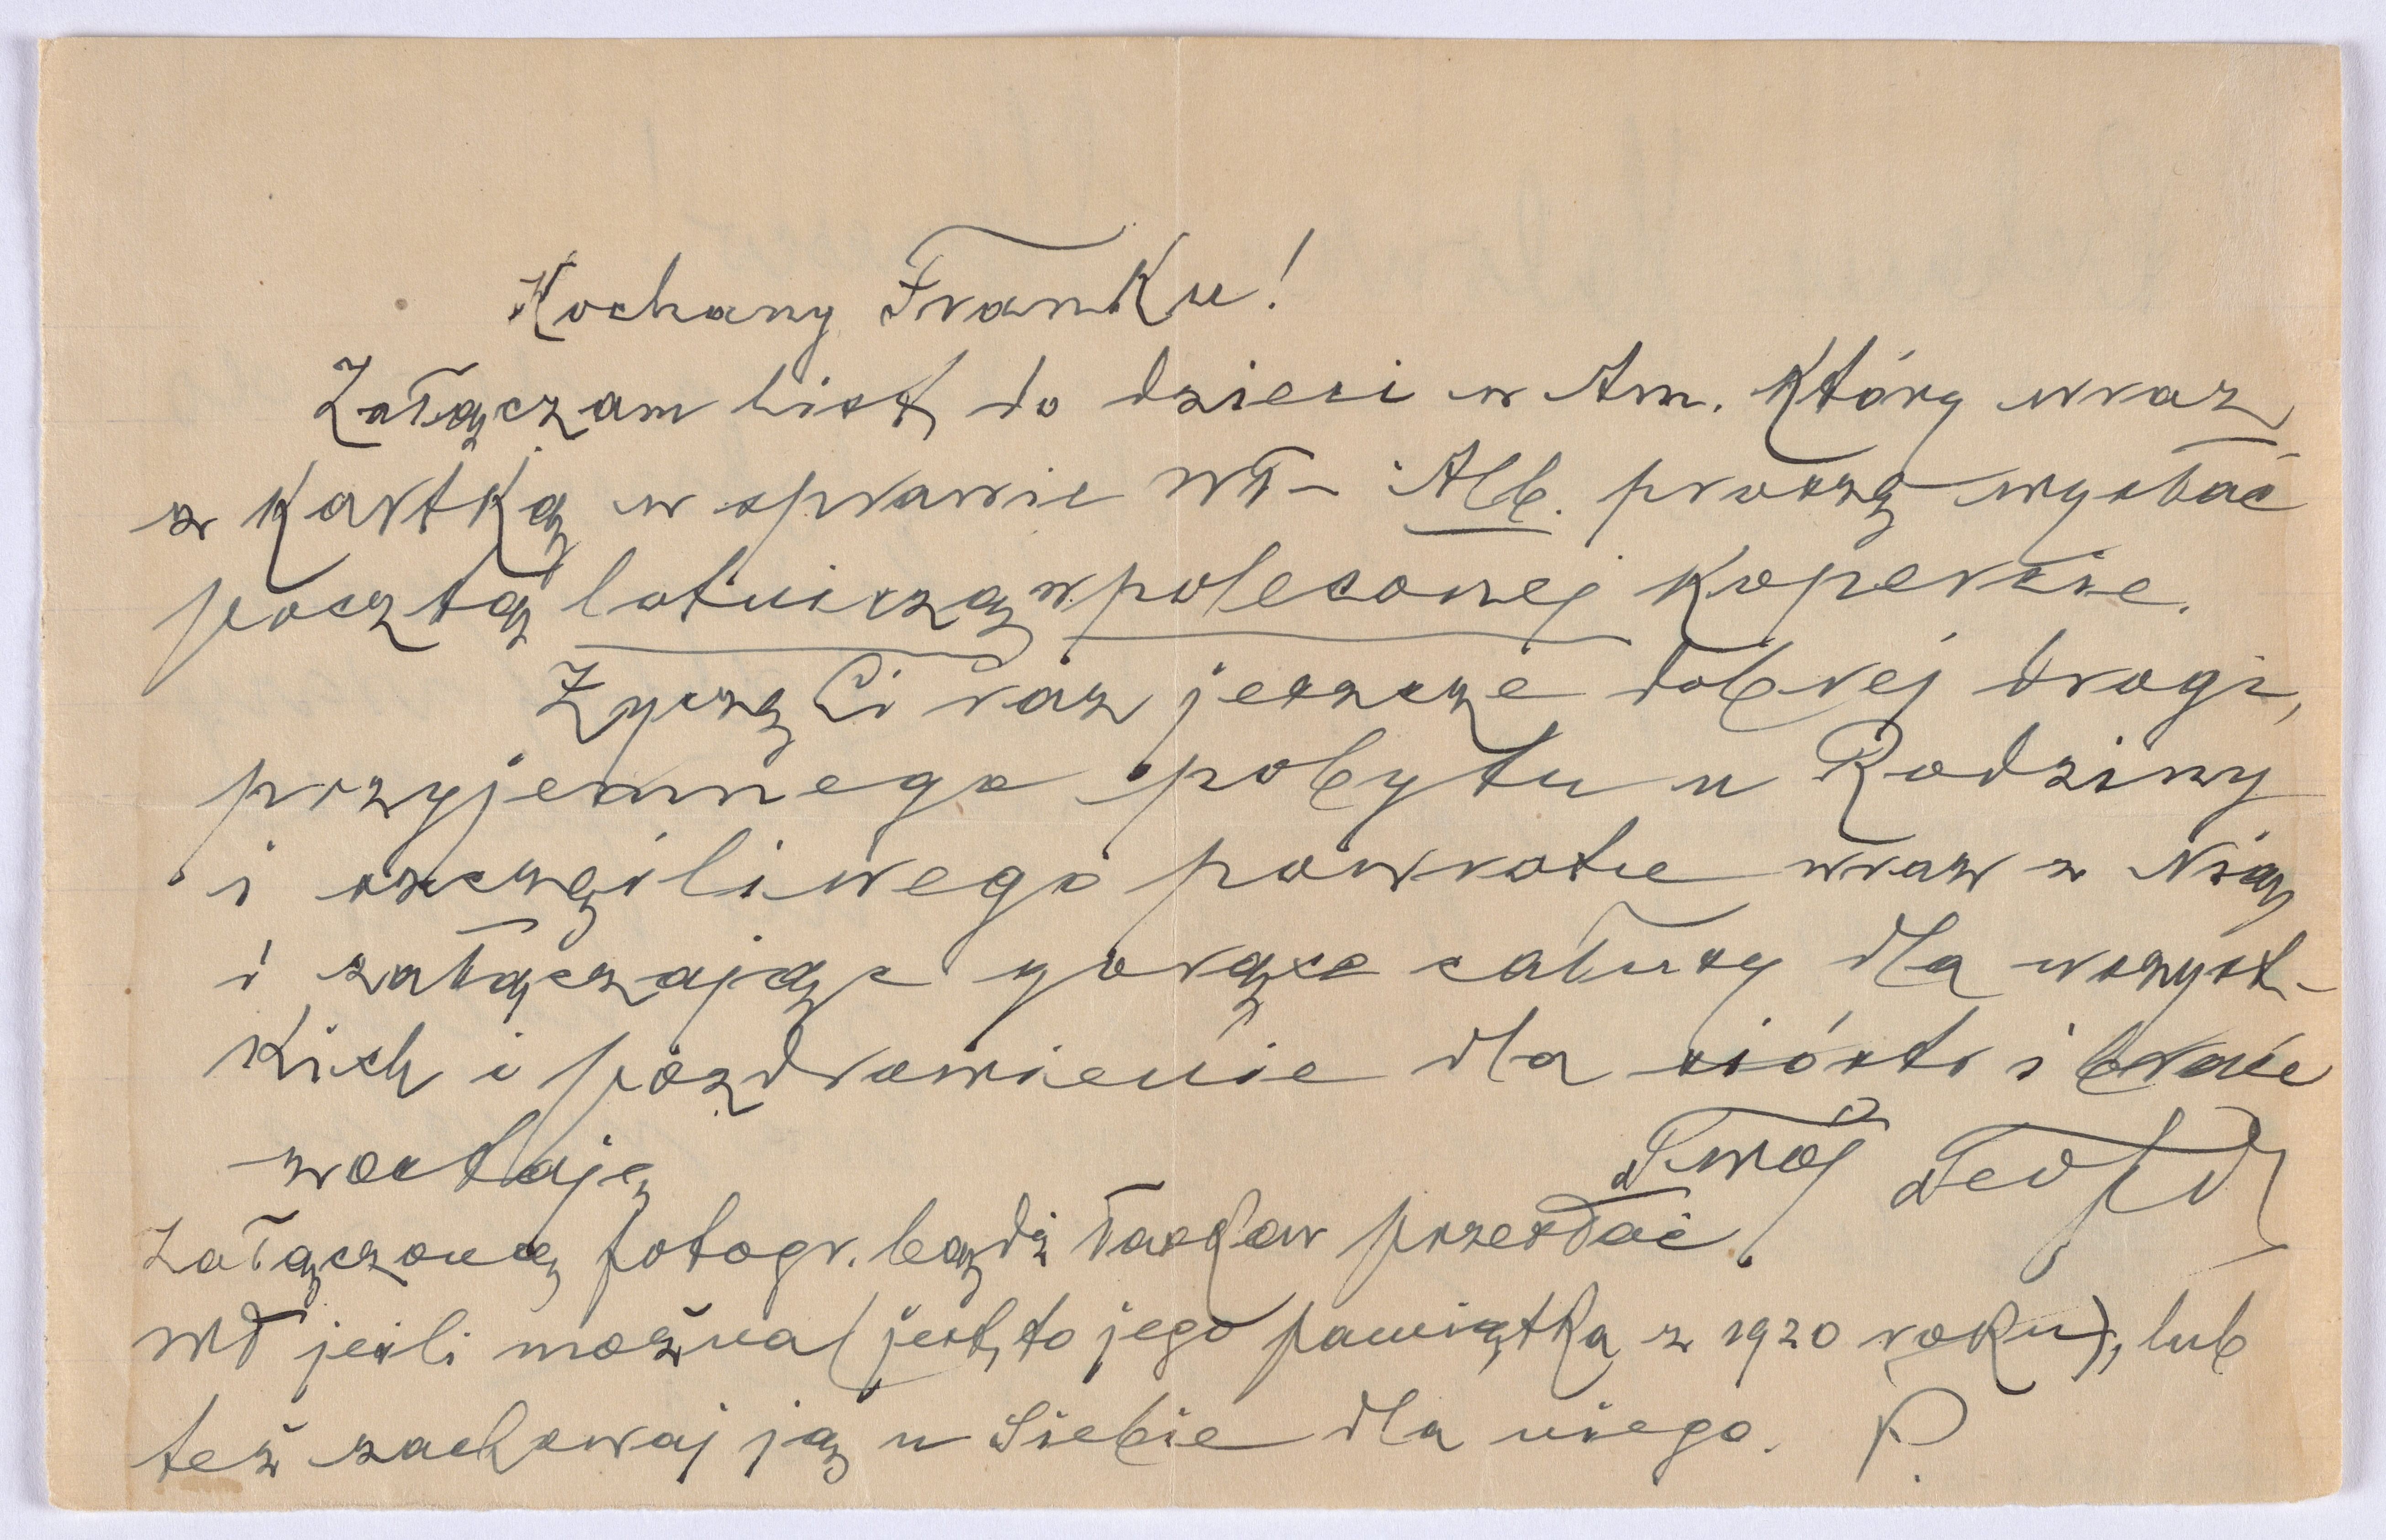 Kochany Franku!
Załączam list do dzieci w Am. który wraz
z kartką w sprawie Wł- i Alb. proszę wysłać
pocztą lotniczą w poleconej kopercie.
Życzę Ci raz jeszcze dobrej drogi,
przyjemnego pobytu u Rodziny
i szczęśliwego powrotu wraz z Nią
i załączając gorące całusy dla wszyst-
kich i pozdrowienie dla sióstr i braci
zostaję
Twój Teofil
Załączoną fotogr. bądź łaskaw przesłać
Wł jeśli można (jest to jego pamiątka z 1920 roku), lub
też zachowaj ją u Siebie dla niego. P.